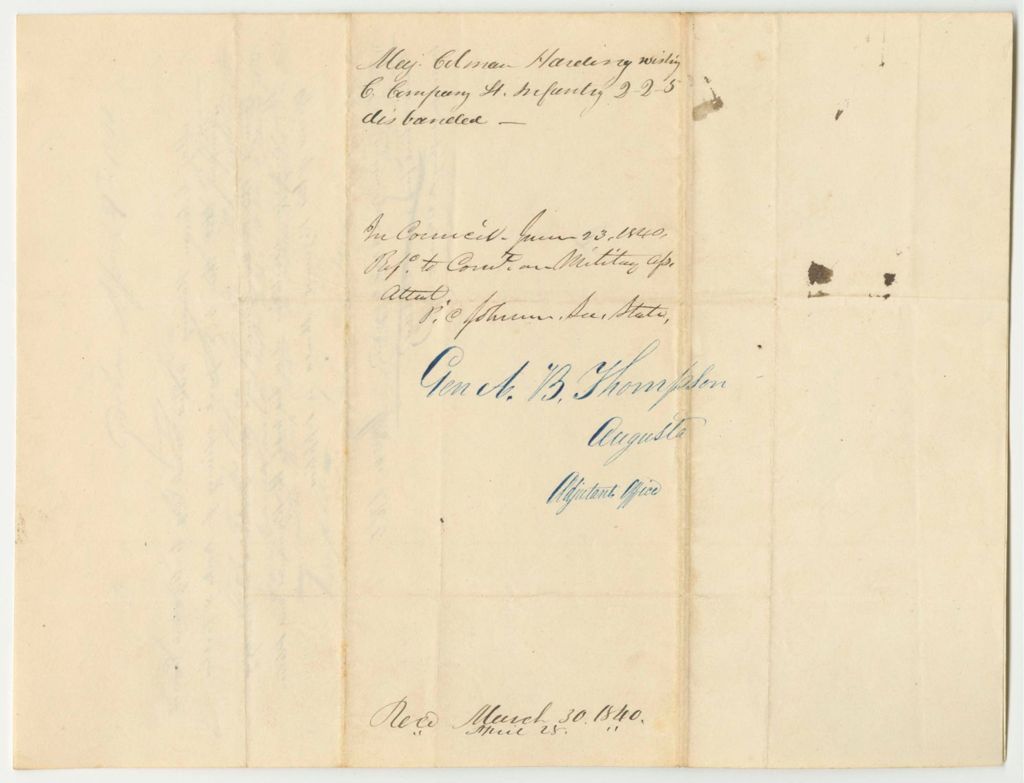 Maj. Colman Harding wishing
C. Company Lt. Infantry 2-2-5
disbanded —
In Council - June 23, 1840,
Refd. to Comtee. on Military affs.
Attest,
P. C. Johnson, Sec. State,
Gen A. B. Thompson
Augusta
Adjutants Office
Recd March 30. 1840.
" April 28. "